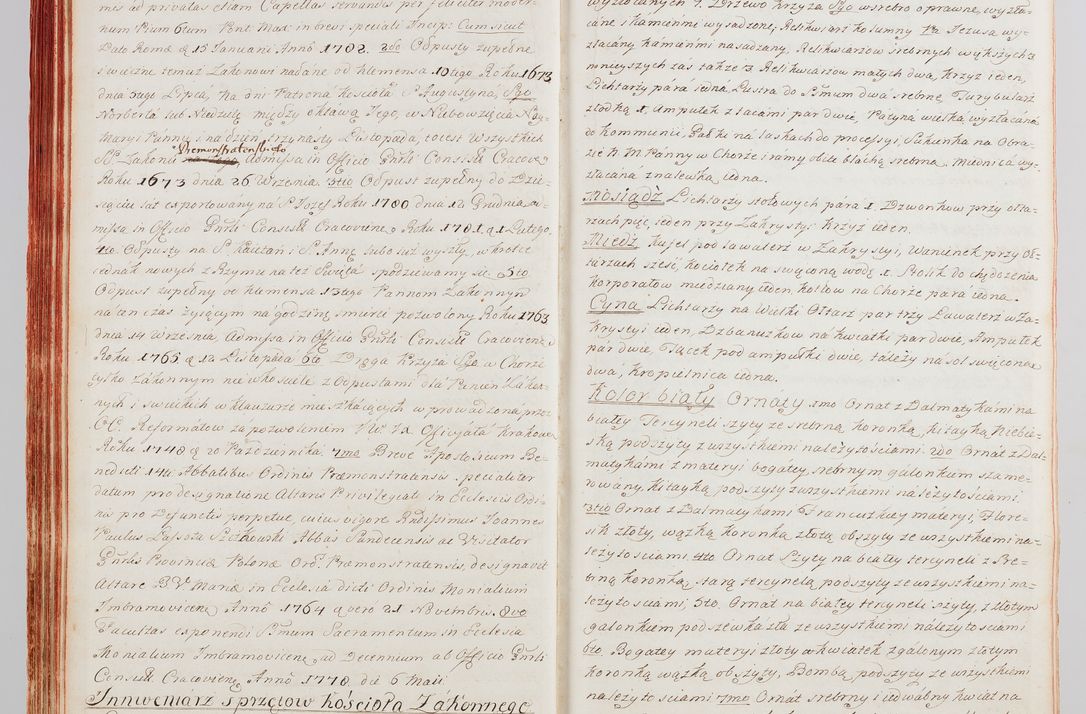 mis ad privatas etiam Capellas servandis per feliciter moder=
num Pium 6tum Pont. Max. in brevi speciali Incip: Cum sicut
Dato Romæ d. 15 Januarii Anno 1702. 2do Odpusty zupełne
wieczne temuż Zakonowi nadane od Klemensa 10tego Roku 1673
dnia 5tego Lipca, na dni Patrona Kościoła S. Augustyna, Sgo
Norberta lub Niedzielę między oktawą Jego, w Niebowzięcia Nay=
Maryi Panny, i na dzień trzynasty Listopada, to iest Wszystkich
SS. Zakonu Præmonstratenskiego admissa in Officio Gnrli Consisti Cracov.
Roku 1673 dnia 26 Września. 3tio Odpust zupełny do Dzie=
sięciu lat exportowany na S. Jozef Roku 1700 dnia 12 Grudnia ad=
missa in Officio Gnrli Consisti Cracoviens. Roku 1701 d. 1 Lutego,
4to Odpusty na S. Kaietan i S. Annę lubo iuż wyszły, wkrotce
iednak nowych z Rzymu na też Święta spodziewamy się. 5to
Odpust zupełny od Klemensa 13tego Pannom Zakonnym
na ten czas żyiącym na godzinę śmierci pozwolony Roku 1763
dnia 14 Września, Admissa in Officio Gnrli Consisti Cracoviens.
Roku 1765 d. 12 Listopada 6te Droga Krzyża Sgo w Chorze
tylko Zakonnym nie w kościele z Odpustami dla Panien Zakon=
nych i świeckich w klauzurze mieszkaiących wprowadzona przez
OO. Reformatow za pozwoleniem Officyjała Krakows.
Roku 1748 d. 20 Października. 7mo Breve Apostolicum Be=
nedicti 14ti Abbatibus Ordinis Præmonstratensis specialiter
datum pro designatione Altaris Privilegiati in Ecclesiis Ordi=
nis pro Defunctis perpetue, cuius vigore Rndissimus Joannes
Paulus Abbas Sandecensis ac Visitator
Gnrlis Provinciæ Polonæ Ord. Præmonstratensis, designavit
Altare B.V. Mariæ in Ecclesia dicti Ordinis Monialium
Imbramovicens. Anno 1764 d. vero 21 Novembris. 8vo
Facultas exponendi SSmum Sacramentum in Ecclesia
Monialium Imbramovicens. ad Decennium ab Officio Gnrli
Consisti Cracoviens. Anno 1778 die 6 Maii.
Innwentarz sprzętow Kościoła Zakonnego
wyzłacanych 7. Drzewo Krzyża Sgo w srebro oprawne, wyzła=
cane i kamieńmi wysadzone, Relikwiarz kolumny Pa. Jezusa wy=
złacany kamieńmi nasadzany, Relikwiarzow srebrnych większych 3
mnieyszych zaś także 3. Relikwiarzow małych dwa, krzyż ieden,
Lichtarzy para iedna, Lustra do SSmum dwa srebrne, Turybularz
z łodką 1. Ampułek z tacami par dwie, Patyna wielka wyzłacana
do kommunii, Pałki na laskach do processyi, Sukienka na Obra=
zie N. M. Panny w Chorze i ramy obite blachą srebrną, miednica wy=
złacana z nalewką iedna.
Mosiądz Lichtarzy stołowych para 1. Dzwonkow przy ołta=
rzach pięć, ieden przy Zakrystyi. Krzyż ieden.
Miedź. Kufel pod lawaterz w Zakrystyi, wanienek przy oł=
tarzach sześć, kociołek na święconą wodę 1. Stolik do chędożenia
korporałow miedziany ieden, kotłow na Chorze para iedna.
Cyna Lichtarzy na Wielki Ołtarz par trzy, Lawaterz w Za=
krystyi ieden, Dzbanuszkow na kwiatki par dwie, Ampułek
par dwie, Tacek pod ampułki dwie, talerzy na sol święconą
dwa, kropielnica iedna.
Kolor biały Ornaty 1mo Ornat z Dalmatykami na
białey Tercyneli szyty ze srebrną koronką, kitayką Niebie=
ską podszyty z wszystkiemi należytościami. 2do Ornat z Dal=
matykami z materyi bogatey, srebrnym galonkiem szame=
rowany, kitayką podszyty z wszystkiemi należytościami.
3tio Ornat z Dalmatykami Francuzkiey materyi, Flore=
sik złoty, wązką koronką złotą obszyty ze wszystkiemi na=
leżytościami. 4to Ornat Szyty na białey tercyneli z Sre=
brną koronką, starą tercynelą podszyty ze wszystkiemi na=
leżytościami, 5to. Ornat na białey tercyneli szyty, z złotym
galonkiem podszewka zła ze wszystkiemi należytościami
6to Bogatey materyi złoty w kwiatek z galonym złotym
koronką wązką obszyty, Bombą podszyty ze wszystkiemi
należytościami 7mo Ornat srebrny i iedwabny kwiat na